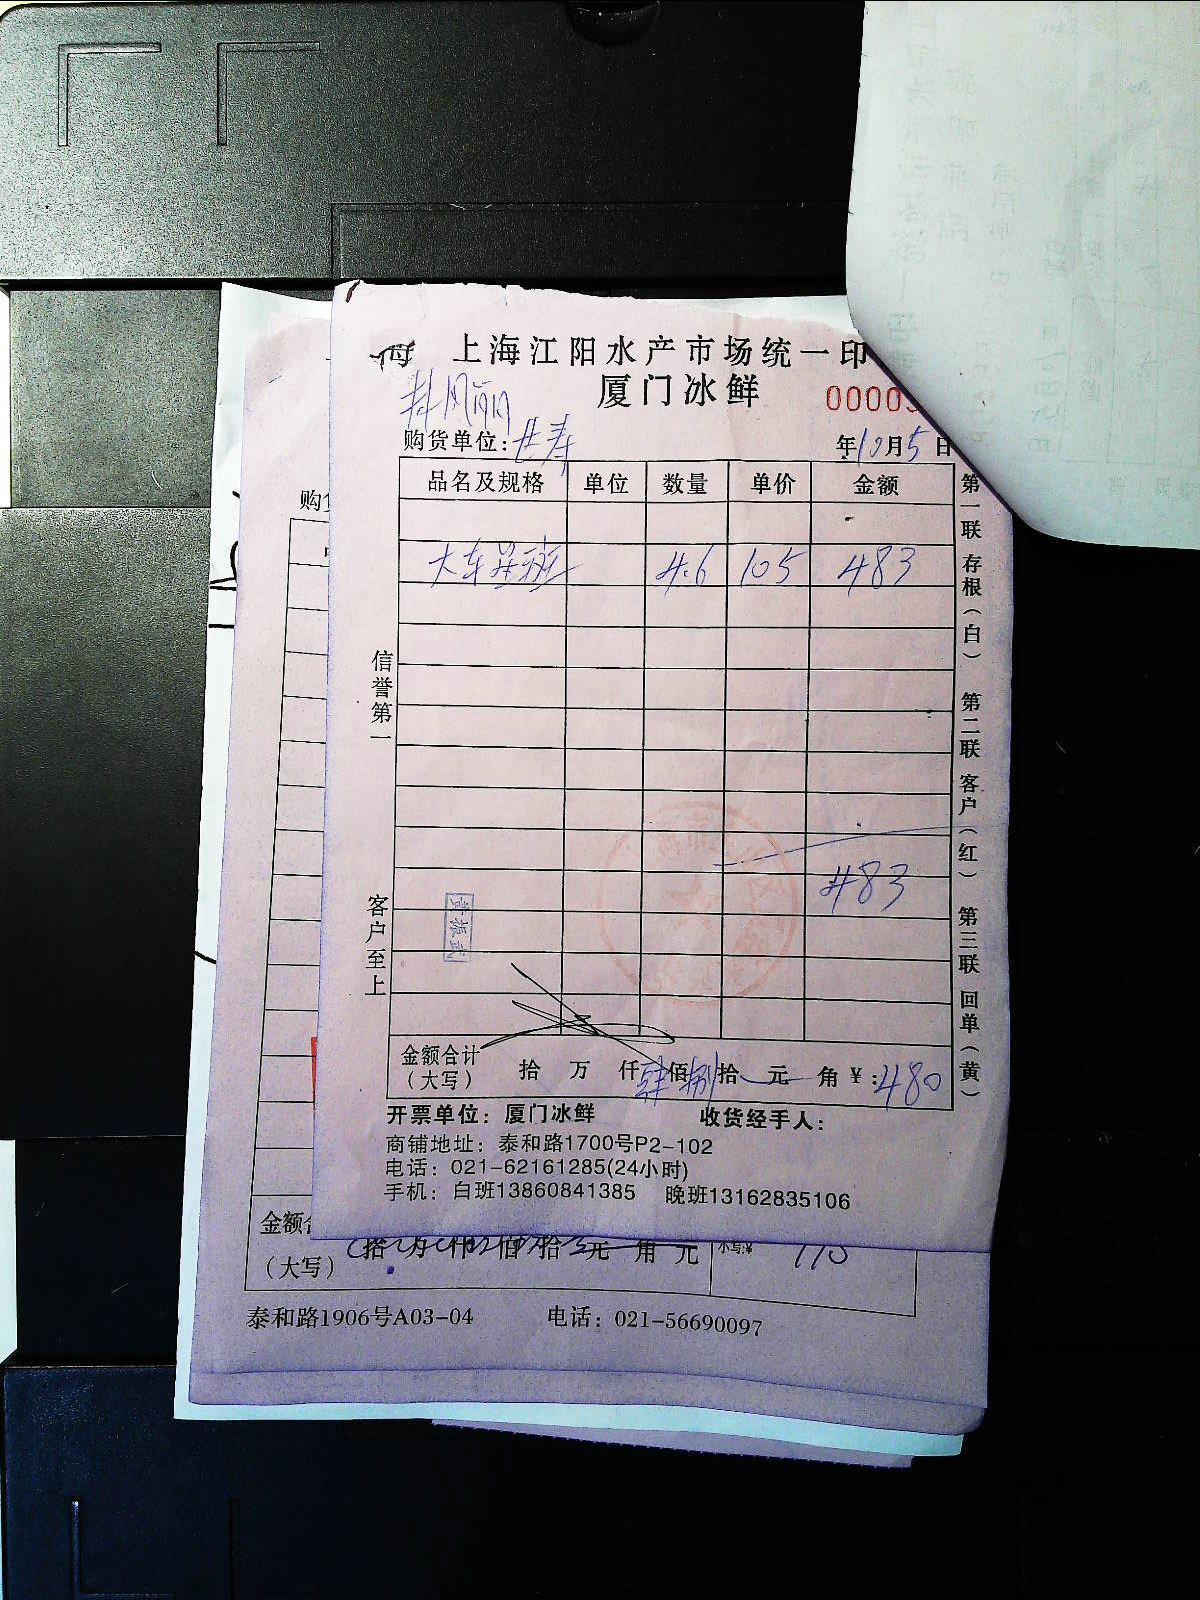 上海江阳水产市场统一印
厦门冰鲜
0000
购货单位: 世寿 年10月5日
品名及规格 单位 数量 单价 金额
大车 斑 4.6 105 483
483
信誉第一
客户至上
第一联 存根（白） 第二联 客户（红） 第三联 回单（黄）
金额合计（大写） 拾 万 仟 肆佰 捌拾 元 角 ¥:480
开票单位：厦门冰鲜 收货经手人：
商铺地址：泰和路1700号P2-102
电话：021-62161285(24小时)
手机：白班13860841385 晚班13162835106
购
金额合
（大写） 拾 万 仟 佰 拾 元 角 元 小写:¥
泰和路1906号A03-04 电话：021-56690097